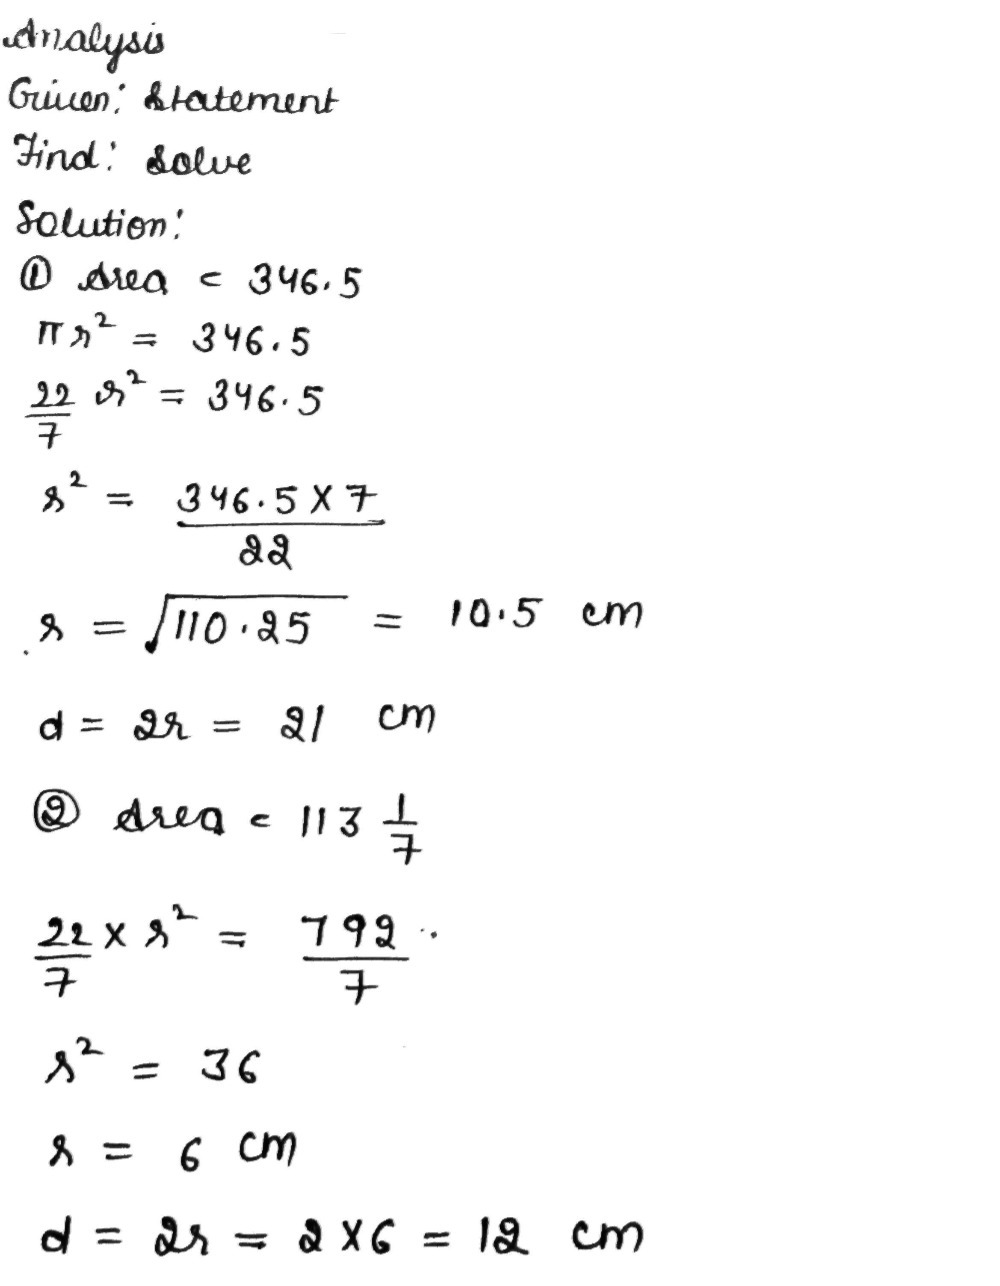 Analysis
Given: Statement
Find: Solve
Solution:
① Area = 346.5
πr² = 346.5
22/7 r² = 346.5
r² = 346.5 X 7 / 22
r = √110.25 = 10.5 cm
d = 2r = 21 cm
② Area = 113 1/7
22/7 x r² = 792/7
r² = 36
r = 6 cm
d = 2r = 2 X 6 = 12 cm